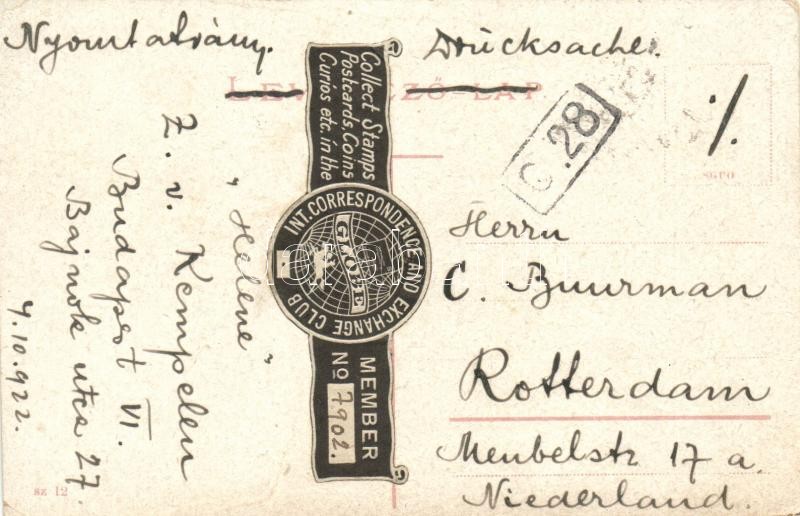 Nyomtatvány. Drucksache.
LEV ZŐ-LAP
Collect Stamps
Postcards, Coins
Curios etc. in the
INT. CORRESPONDENCE AND EXCHANGE CLUB
GLOBE
MEMBER
No 7902.
C. 28
./.
"Helene"
Z. v. Kempelen
Budapest VI.
Bajnok utca 27.
4.10.922.
Herrn
C. Buurman
Rotterdam
Meubelstr 17 a.
Niederland.
sz 12